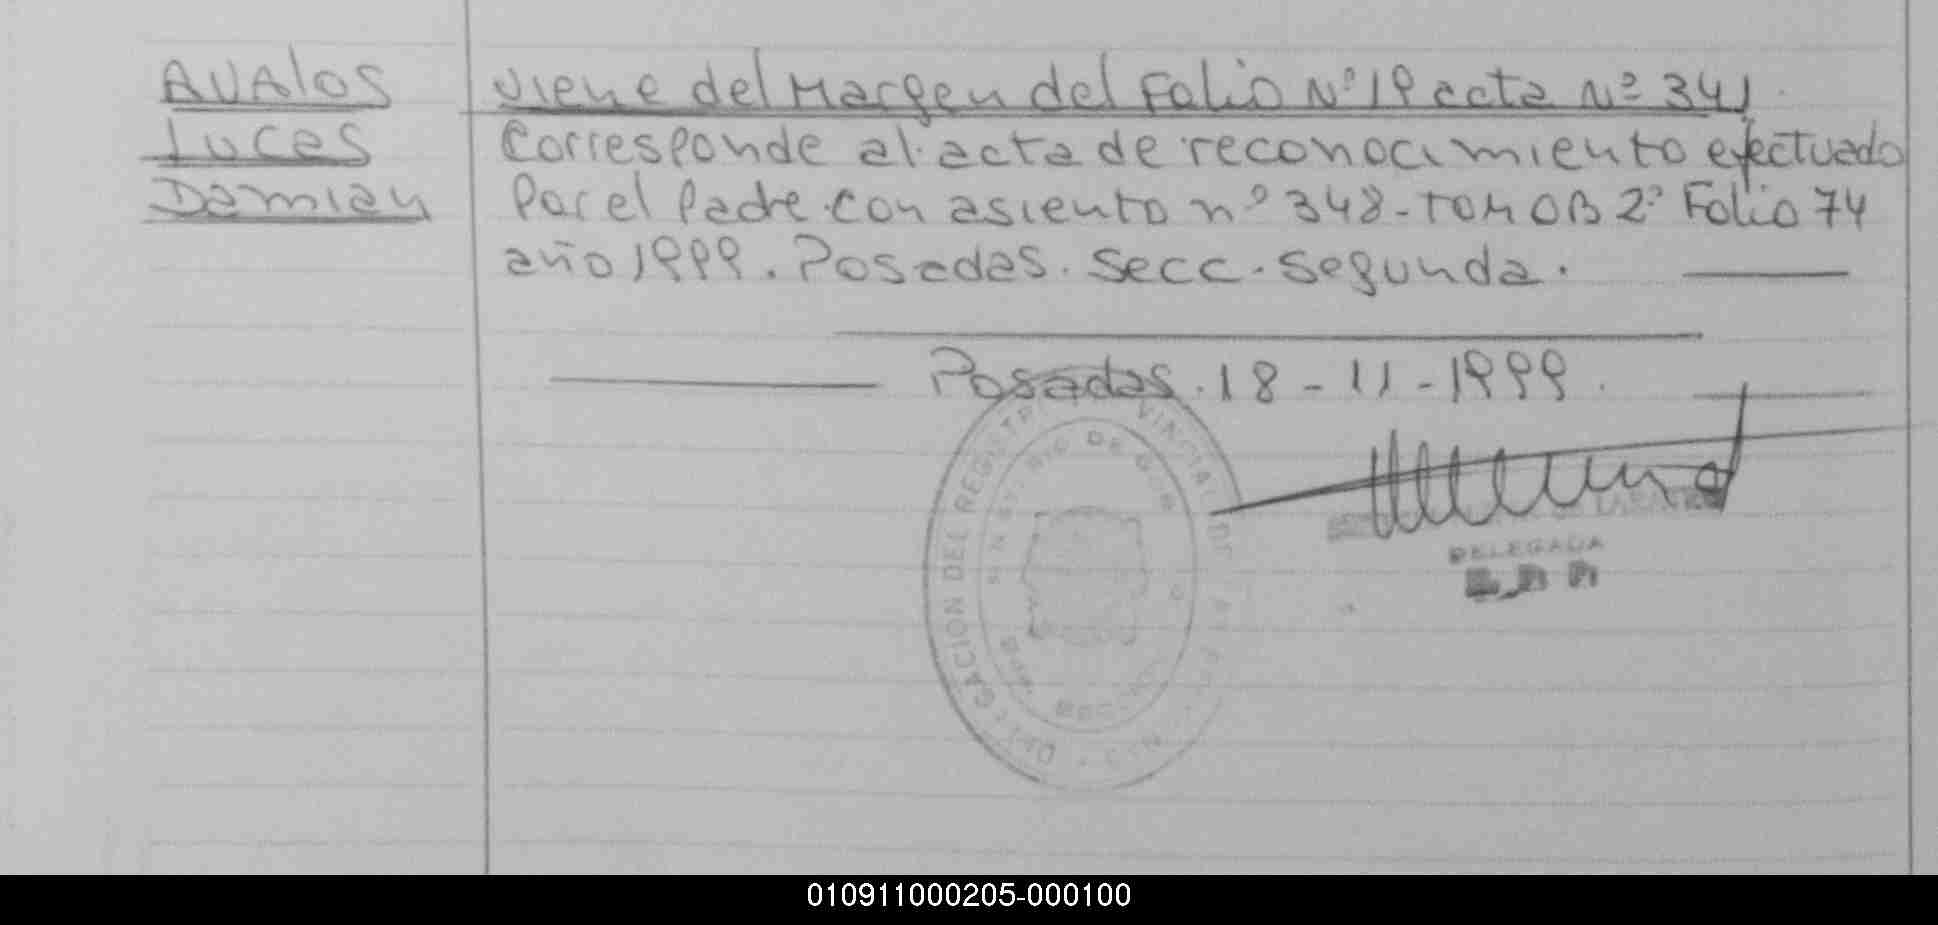 AVAlos
Lucas
Damian
viene del Margen del Folio Nº 19 acta Nº 341.
Corresponde al acta de reconocimiento efectuado
Por el Padre con asiento nº 348-TOMO B 2º Folio 74
año 1999. Posadas. Secc. Segunda.
Posadas. 18-11-1999.
DELEGACION DEL REGISTR
DE GOB
DELEGADA
010911000205-000100